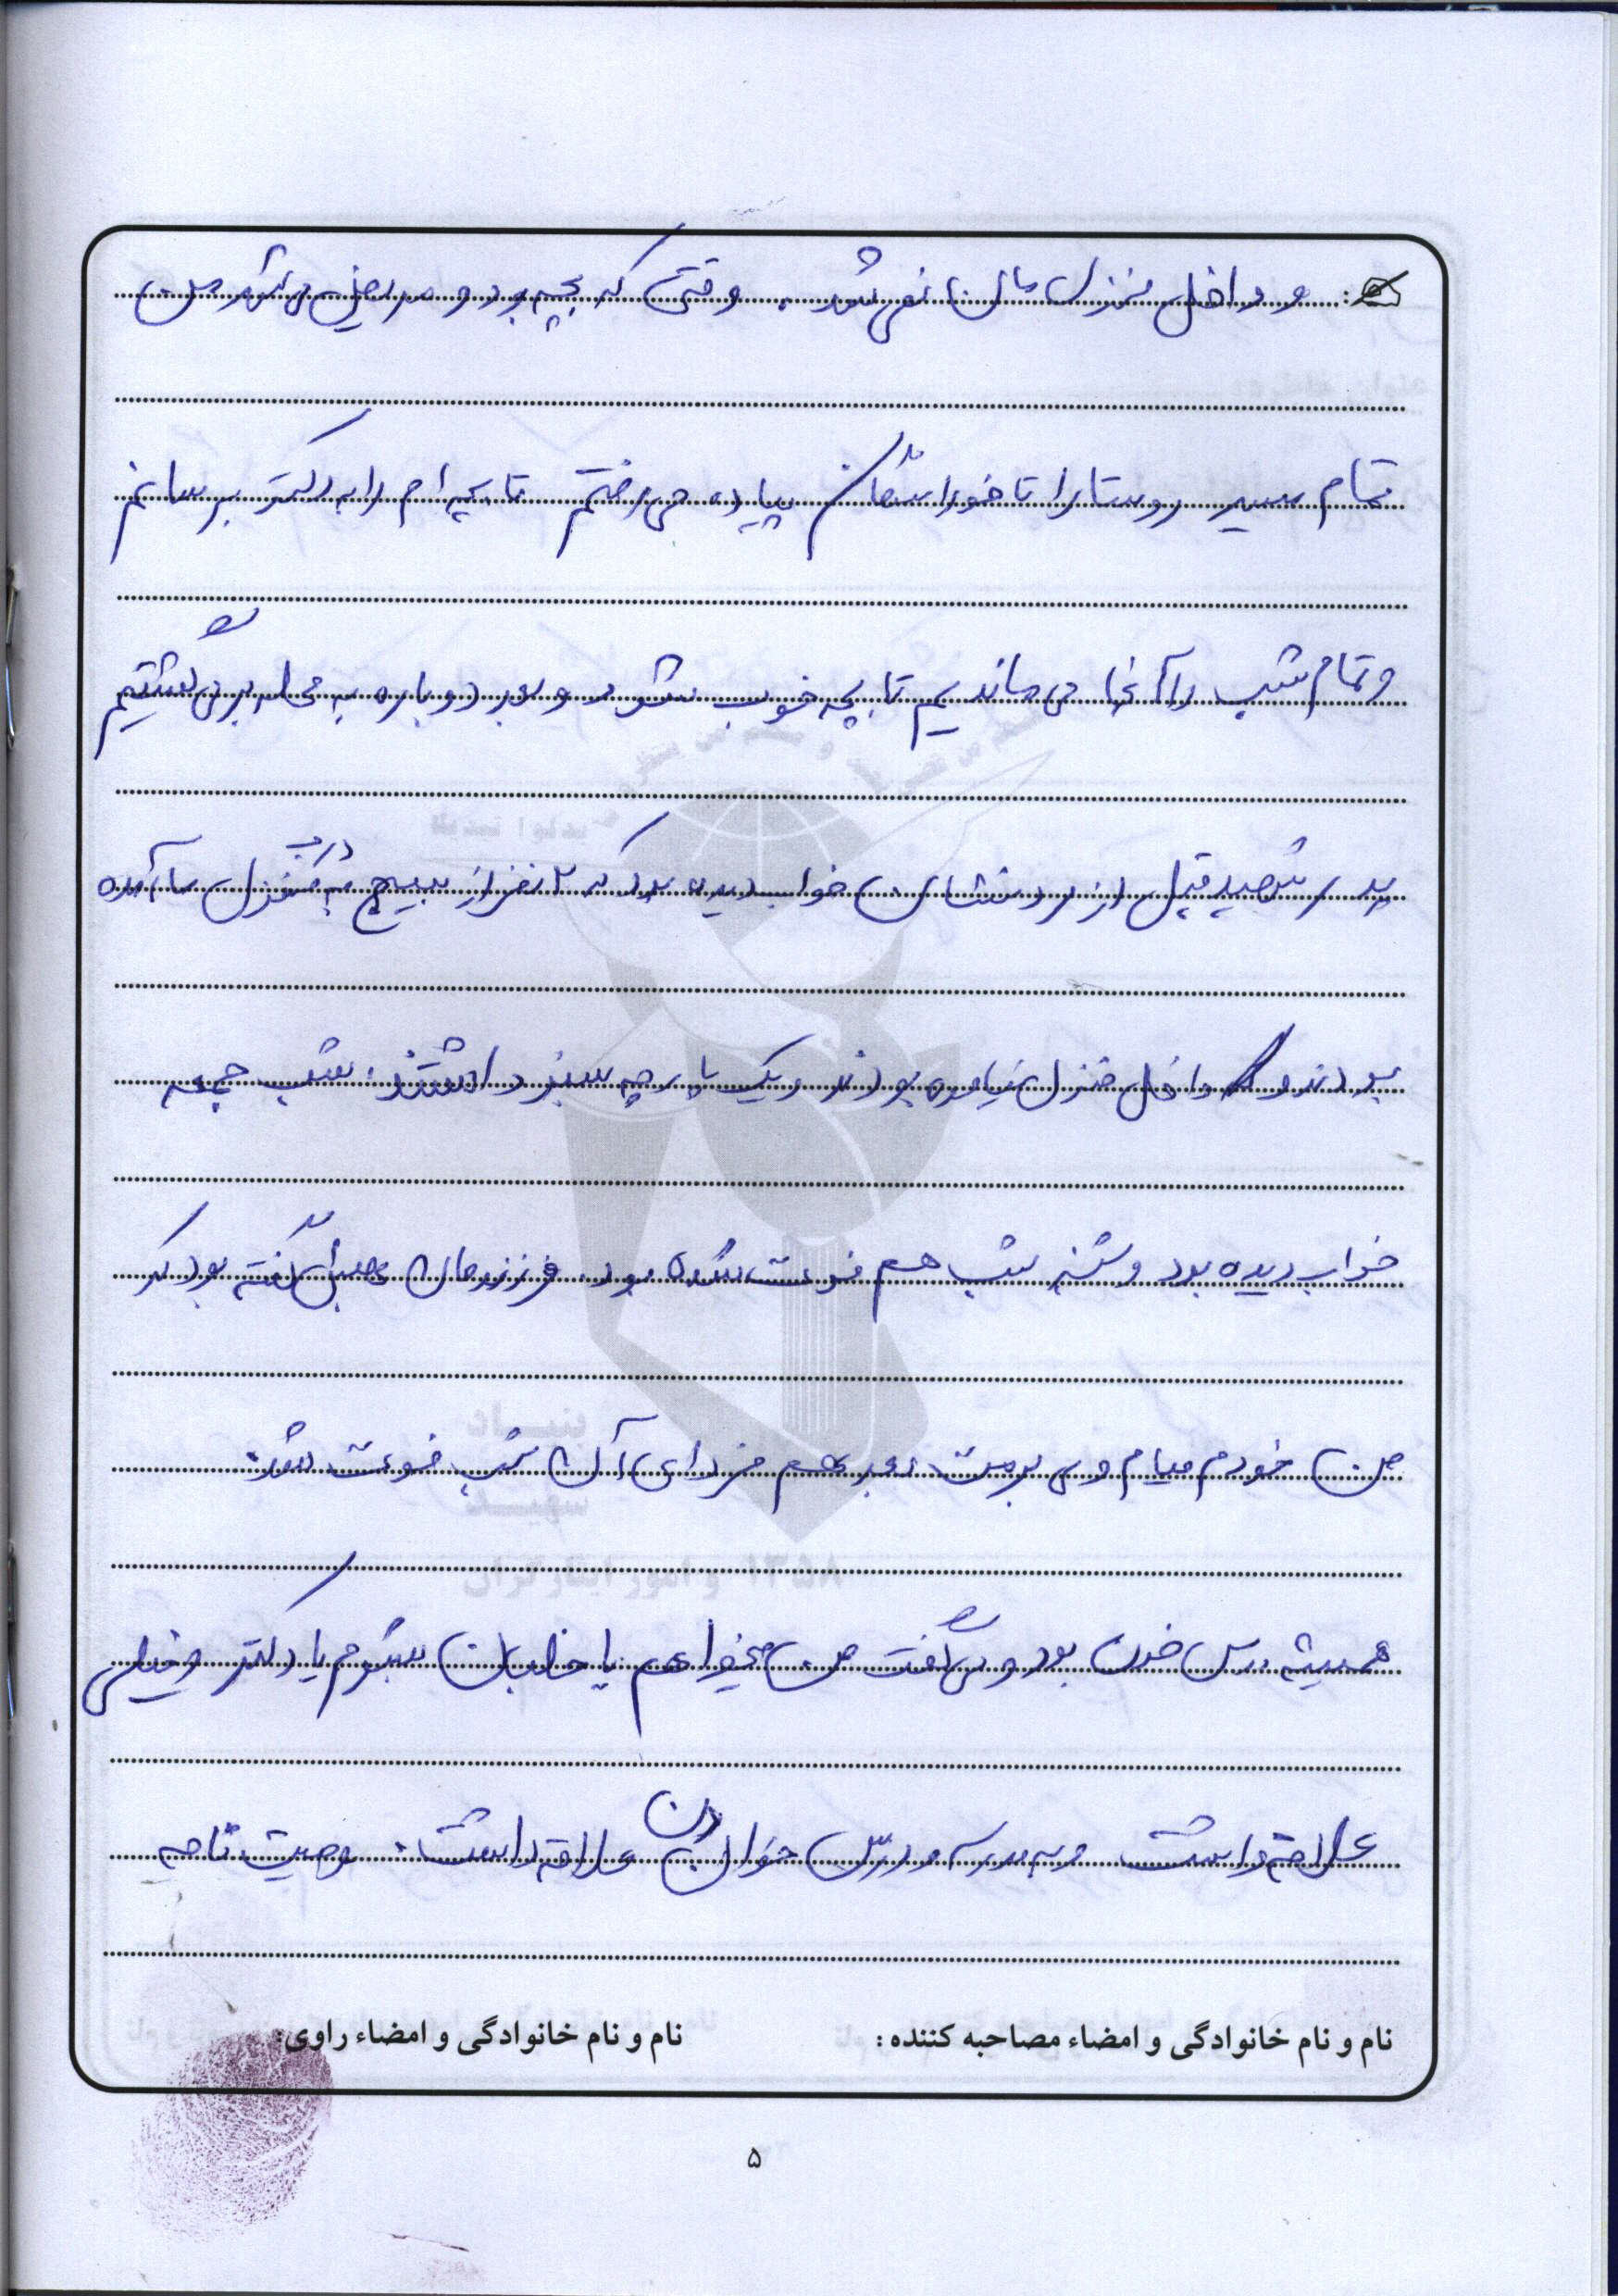 و داخل منزل مان نمی شد. وقتی که بچه بود و مریض می شد من
تمام مسیر روستا را تا خوراسگان پیاده می رفتم تا بچه ام را به دکتر برسانم
و تمام شب را آنجا می ماندیم تا بچه خوب بشود و بعد دوباره به محله برمی گشتیم
پدر شهید قبل از خواب دیده بود که ۲ نفر از بسیج به درب منزل ما آمده
بودند و داخل منزل نیامده بودند و یک پارچه سبز داشتند. شب جمعه
خواب دیده بود و شنبه شب هم فوت شده بود. فرزندمان گفته بود که
من خودم میام و می برمت و بعد هم فردای آن شب فوت شد.
همیشه درس خون بود و می گفت من میخواهم یا خلبان بشوم یا دکتر و خیلی
علاقه داشت و به مدرسه و درس خواندن علاقه داشت. وصیت نامه
نام و نام خانوادگی و امضاء مصاحبه کننده :
نام و نام خانوادگی و امضاء راوی:
۵